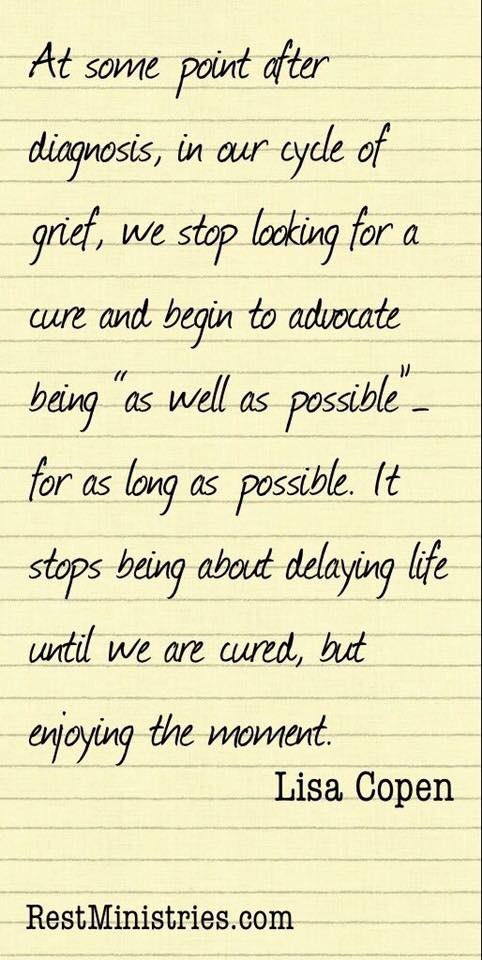 At some point after
diagnosis, in our cycle of
grief, we stop looking for a
cure and begin to advocate
being "as well as possible"–
for as long as possible. It
stops being about delaying life
until we are cured, but
enjoying the moment.
Lisa Copen
RestMinistries.com